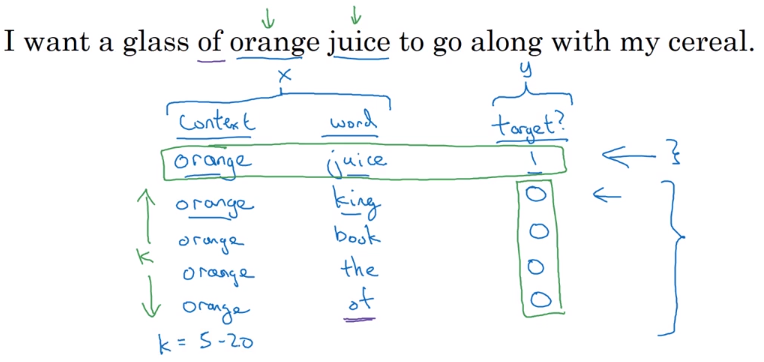 I want a glass of orange juice to go along with my cereal.
x y
Context word target?
orange juice 1
orange king 0
orange book 0
k
orange the 0
orange of 0
k = 5-20